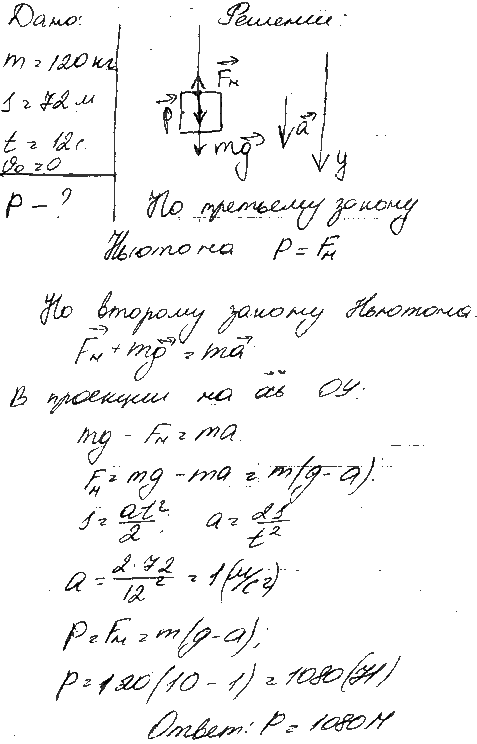 Дано: Решение:
m = 120 кг
s = 72 м
t = 12 с.
v₀ = 0
P – ?
Fн
P
mg
a
y
По третьему закону
Ньютона P = Fн
По второму закону Ньютона.
Fн + mg = ma
В проекции на ось OY:
mg - Fн = ma.
Fн = mg - ma = m(g-a).
s = at²/2; a = 2s/t²
a = 2·72/12² = 1 (м/с²)
P = Fн = m(g-a);
P = 120(10 - 1) = 1080 (Н)
Ответ: P = 1080 Н